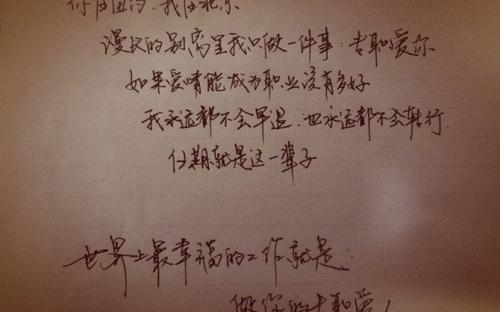 你在国内,我在北京
漫长的别离里我只做一件事:专职爱你
如果爱情能成为职业该有多好
我永远都不会早退,也永远都不会转行.
任期就是这一辈子
世界上最幸福的工作就是:
做你的专职爱人